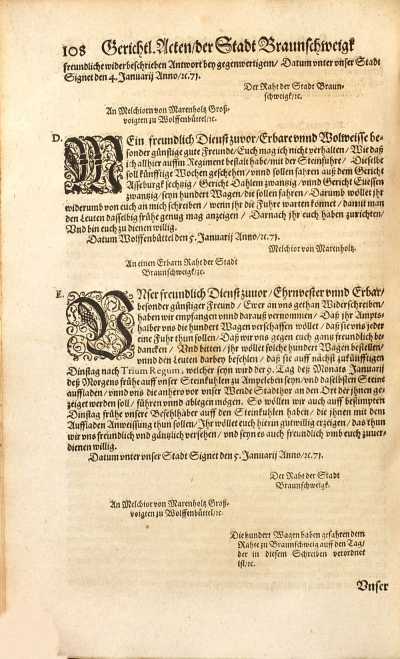 108 Gerichtl. Acten/der Stadt Braunschweigk
freundliche widerbeschrieben Antwort bey gegenwertigem/ Datum vnter vnser Stadt
Signet den 4. Januarij Anno/ꝛc.73.
Der Raht der Stadt Braun-
schweigk/ꝛc.
An Melchiorn von Marenholtz Groß-
voigten zu Wolffenbüttel/ꝛc.
D.
MEin freundlich Dienst zuvor/Erbare vnnd Wolweise be-
sonder günstige gute Freunde/Euch mag ich nicht verhalten/ Wie daß
ich allhier auffm Regiment bestalt habe/mit der Steinfuhre/ Dieselbe
soll künfftige Wochen geschehen/vnnd sollen fahren auß dem Gericht
Asseburgk sechzig/Gericht Dahlem zwanzig/vnnd Gericht Eliessen
zwanzig/seyn hundert Wagen/die sollen fahren/ Darumb wollet ihr
widerumb von euch an mich schreiben/wenn ihr die Fuhre warten könnet/damit man
den Leuten dasselbig frühe genug mag anzeigen/ Darnach ihr euch haben zurichten/
Vnd bin euch zu dienen willig.
Datum Wolffenbüttel den 5. Januarij Anno/ꝛc.73.
Melchior von Marenholtz.
An einen Erbarn Raht der Stadt
Braunschweigk/ꝛc.
E.
VNser freundlich Dienst zuuor/Ehrnvester vnnd Erbar/
besonder günstiger Freund/ Ewer an vns gethan Widerschreiben/
haben wir empfangen vnnd darauß vernommen/ Daß ihr Ampts-
halber vns die hundert Wagen verschaffen wöllet/ daß sie vns jeder
eine Fuhr thun sollen/ Daß wir vns gegen euch gantz freundlich be-
dancken/ Vnd bitten/ ihr wöllet solche hundert Wagen bestellen/
vnnd den Leuten darbey befehlen/ daß sie auff nächst zukünfftigen
Dinstag nach Trium Regum, welcher seyn wird der 9. Tag deß Monats Januarij
deß Morgens frühe auff vnser Steinkuhlen zu Ampeleben seyn/vnd daselbsten Steine
auffladen/ vnnd vns die anhero vor vnser Wende Stadtthor an den Ort der jhnen ge-
zeiget werden soll/ führen vnnd ablegen mögen. So wöllen wir auch auff bestimpten
Dinstag frühe vnsere Befehlhaber auff den Steinkuhlen haben/ die jhnen mit dem
Auffladen Anweissung thun sollen/Ihr wöllet euch hierin gutwillig erzeigen/ das thun
wir vns freundlich vnd gäntzlich versehen/ vnd seyn es auch freundlich vmb euch zuuer-
dienen willig.
Datum vnter vnser Stadt Signet den 5. Januarij Anno/ꝛc.73.
Der Raht der Stadt
Braunschweigk.
An Melchior von Marenholtz Groß-
voigten zu Wolffenbüttel/ꝛc.
Die hundert Wagen haben gefahren dem
Rahte zu Braunschweig auff den Tag/
der in diesem Schreiben verordnet
ist/ꝛc.
Vnser